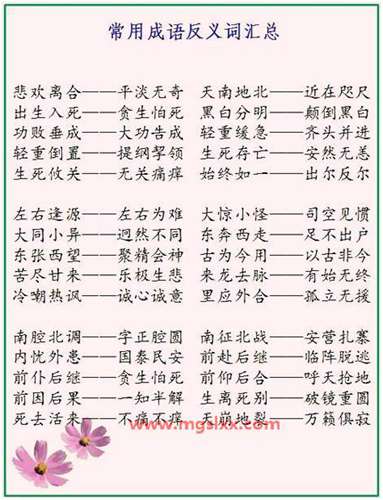 常用成语反义词汇总
悲欢离合——平淡无奇 天南地北——近在咫尺
出生入死——贪生怕死 黑白分明——颠倒黑白
功败垂成——大功告成 轻重缓急——齐头并进
轻重倒置——提纲挈领 生死存亡——安然无恙
生死攸关——无关痛痒 始终如一——出尔反尔
左右逢源——左右为难 大惊小怪——司空见惯
大同小异——迥然不同 东奔西走——足不出户
东张西望——聚精会神 古为今用——以古非今
苦尽甘来——乐极生悲 来龙去脉——有始无终
冷嘲热讽——诚心诚意 里应外合——孤立无援
南腔北调——字正腔圆 南征北战——安营扎寨
内忧外患——国泰民安 前赴后继——临阵脱逃
前仆后继——贪生怕死 前仰后合——呼天抢地
前因后果——一知半解 生离死别——破镜重圆
死去活来——不痛不痒 天崩地裂——万籁俱寂
www.mgslxx.com